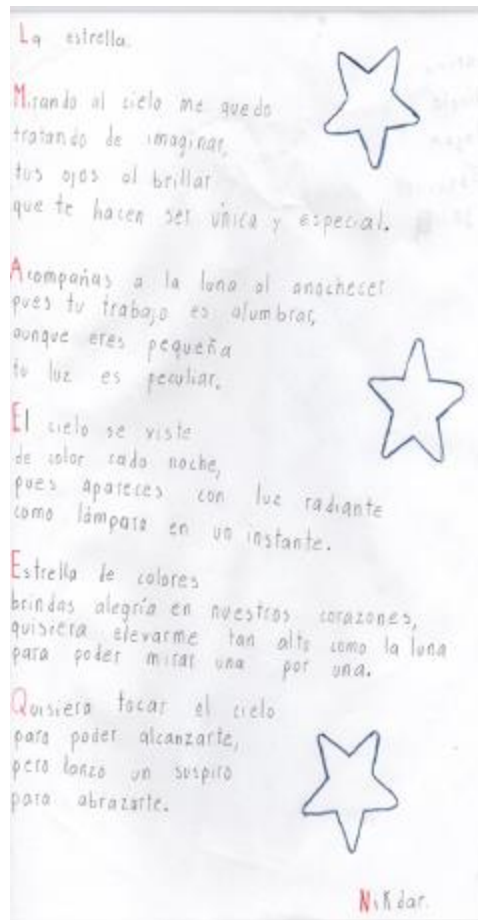 La estrella.
Mirando al cielo me quedo
tratando de imaginar,
tus ojos al brillar
que te hacen ser única y especial.
Acompañas a la luna al anochecer
pues tu trabajo es alumbrar,
aunque eres pequeña
tu luz es peculiar.
El cielo se viste
de color cada noche,
pues apareces con luz radiante
como lámpara en un instante.
Estrella de colores
brindas alegría en nuestros corazones,
quisiera elevarme tan alto como la luna
para poder mirar una por una.
Quisiera tocar el cielo
para poder alcanzarte,
pero lanzo un suspiro
para abrazarte.
Nikdar.